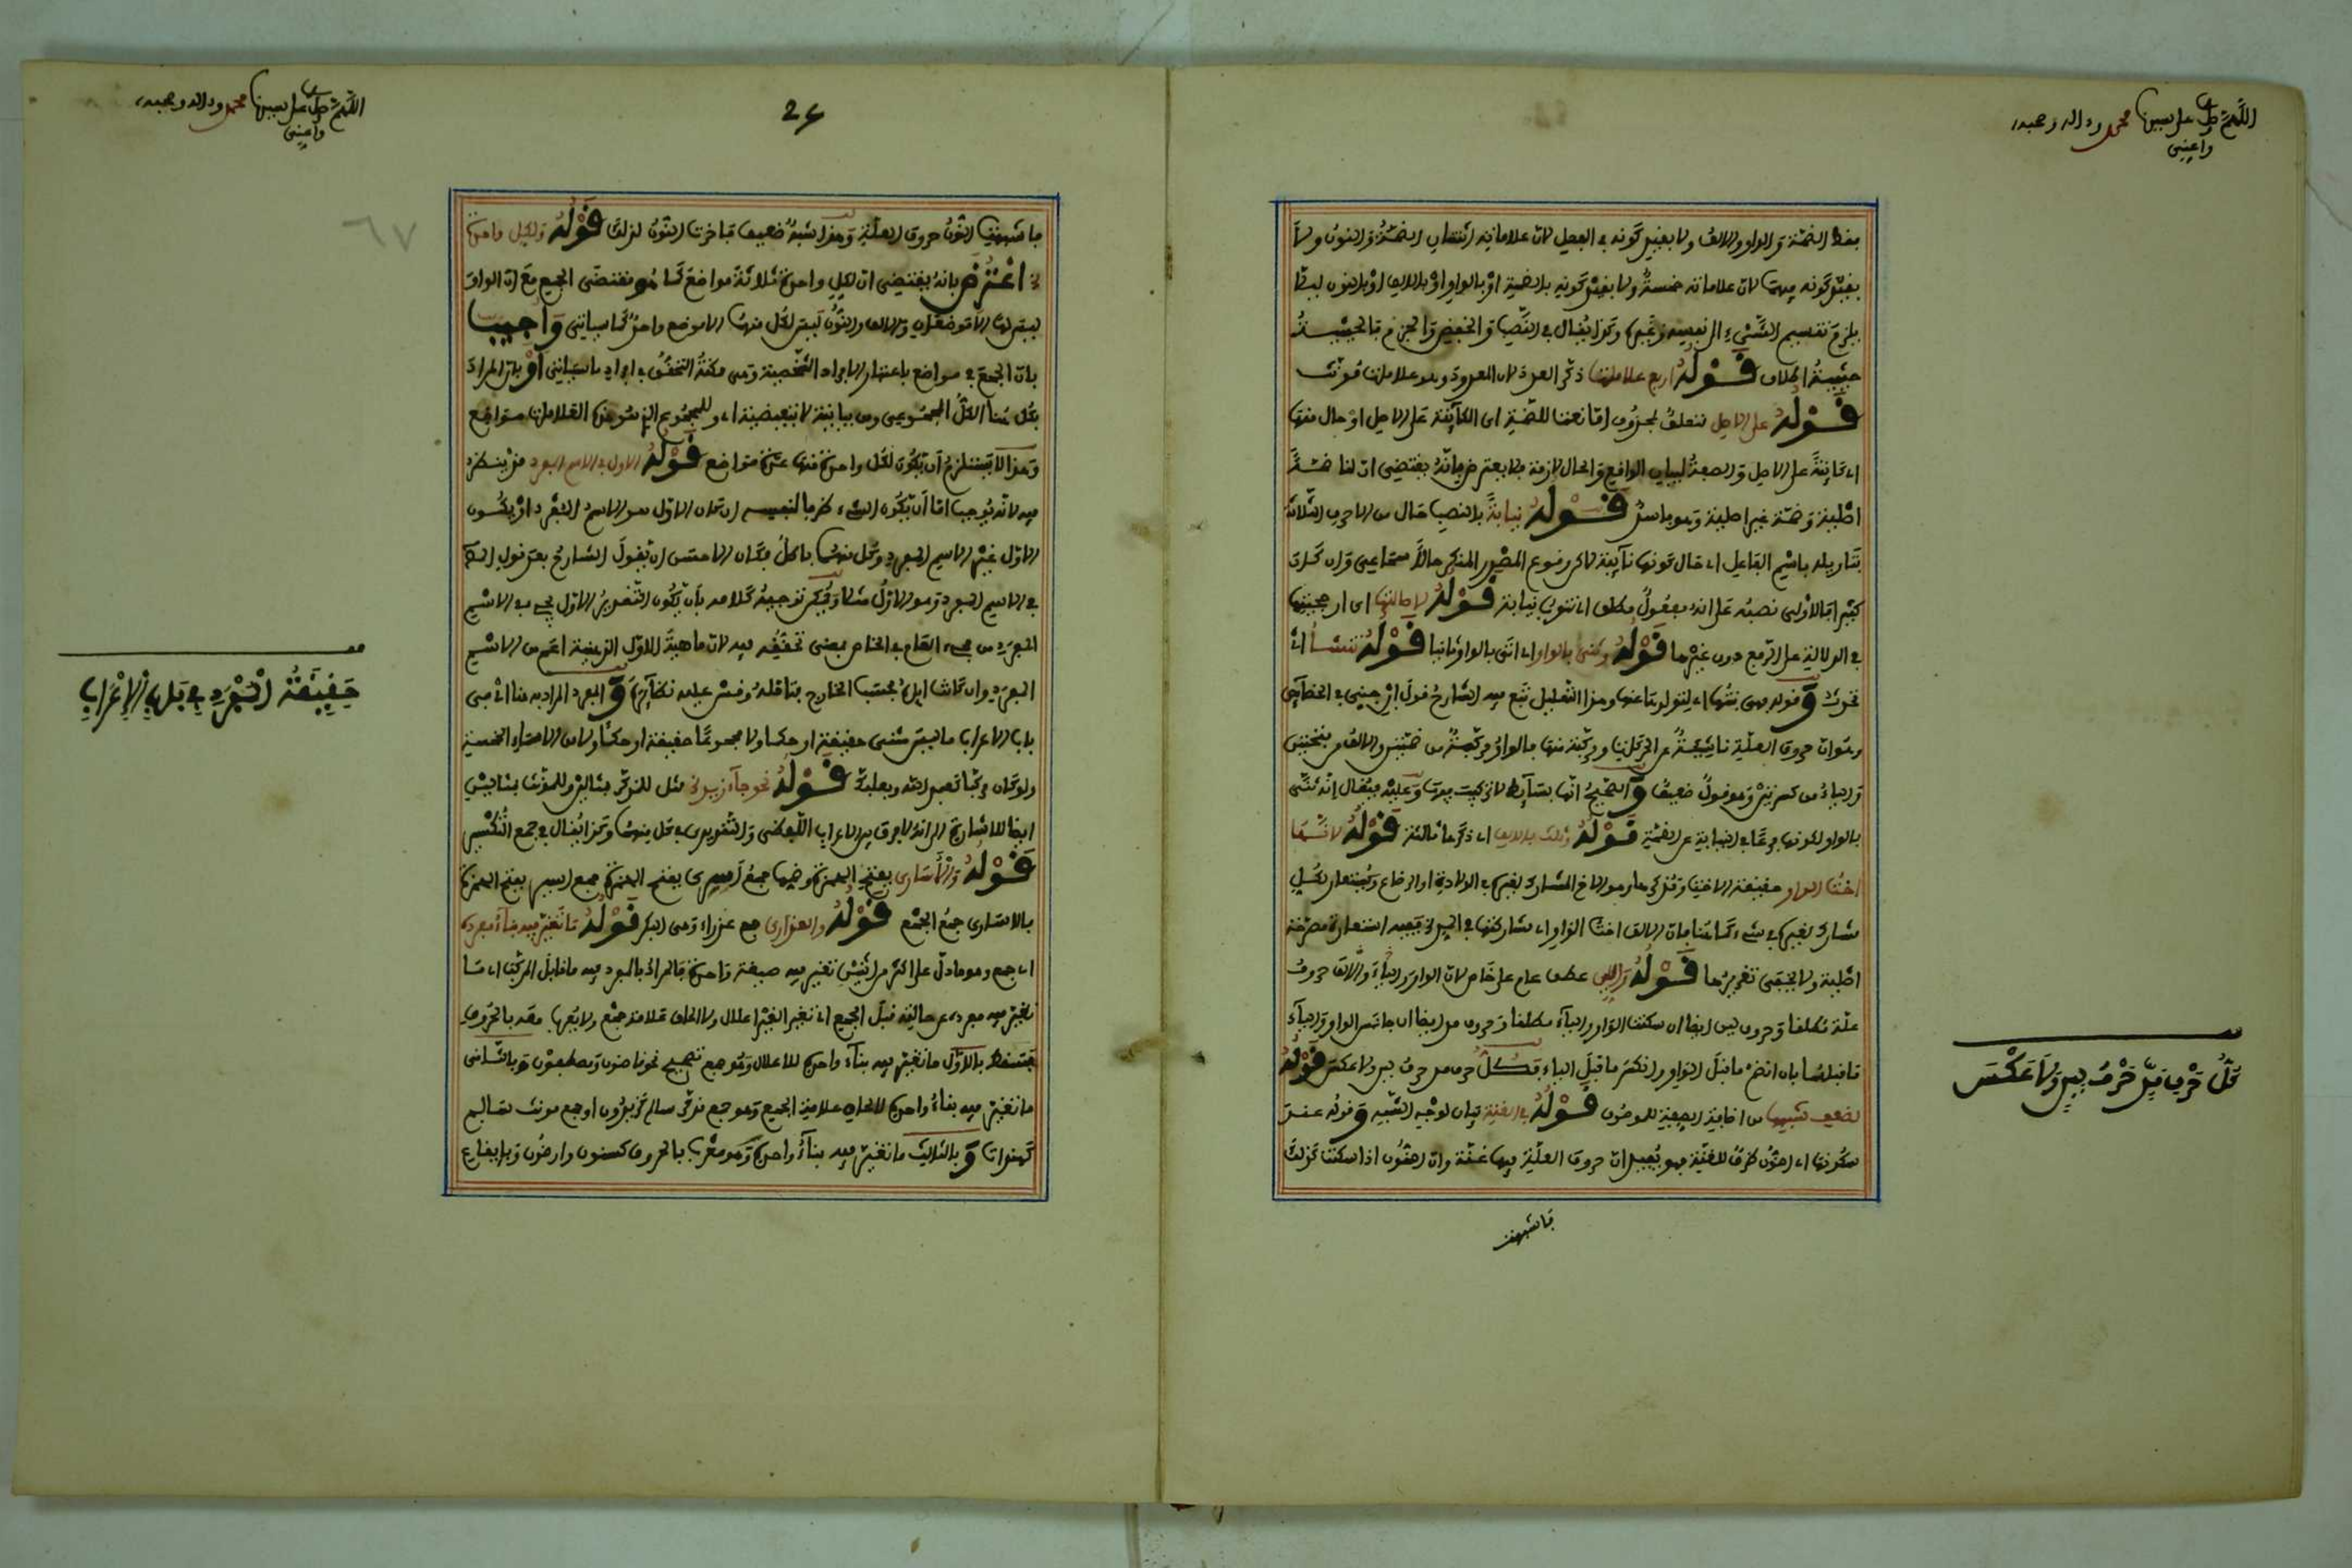 اللهم صل على نبينا محمد وءاله وصحبه
وأعني
بفظ الضمة والواو والالف ولا بقيد كونه في الفعل لان علاماته اثنتان الضمة والنون ولا
بقيد كونه فيهما لان علاماته خمسة ولا بقيد كونه بالضمة او بالواو او بالالف او بالنون ليلا
يلزم تقسيم الشيء الى نفسه وغيره وكذا يقال في النصب والخفض والجزم فالحيثية
حيثية اطلاق قوله اربع علامات ذكر العدد لان المعدود وهو علامات مؤنث
قوله على الاصل متعلق بمحذوف اما نعتا للضمة اى الكائنة على الاصل او حال منها
اى كائنة على الاصل والصفة لبيان الواقع والحال لازمة فلا يعترض بانه يقتضى ان لنا ضمة
اصلية وضمة غير اصلية وهو فاسد قوله نيابة بالنصب حال من الاحرف الثلاثة
بتاويله باسم الفاعل اى حال كونها نائبة لاكن وقوع المصدر المنكر حالا سماعي وان كان
كثيرا فالاولى نصبه على انه مفعول مطلق اى تنوب نيابة قوله لاصالتها اى ارجحيتها
في الدلالة على الرفع دون غيرها قوله وثنى بالواو اى اتى بالواو ثانيا قوله تنشأ اى
تحدث وقوله فهى بنتها اى لتولدها عنها وهذا التعليل تبع فيه الشارح قول ابن جنى في الخصائص
وغيره ان حروف العلة ناشئة عن الحركات ومركبة منها فالواو مركبة من ضمتين والالف من فتحتين
والياء من كسرتين وهو قول ضعيف والصحيح انها بسائط لا تركيب فيها وعليه فيقال انه ثنى
بالواو لكونها فرعا في النيابة عن الضمة قوله وثلث بالالف اى ذكرها ثالثة قوله لانها
اخت الواو حقيقة الاخت وكذا هو الاخ المشارك لغيره في الولادة او الرضاع وتستعار لكل
مشارك لغيره في شيء كما هنا فان الالف اخت الواو اى مشاركتها في اللين ففيه استعارة مصرحة
اصلية ولا يخفى تقريرها قوله واللين عطف عام على خاص لان الواو والياء والالف حروف
علة مطلقا وحروف لين ايضا ان سكنت الواو والياء مطلقا وحروف مد ايضا ان جانس الواو والياء
ما قبلهما بان انضم ما قبل الواو وانكسر ما قبل الياء فكل حرف مد حرف لين ولا عكس قوله
لضعف شبهها من اضافة الصفة للموصوف قوله في الغنة بيان لوجه الشبه وقوله عند
سكونها اى النون ظرف للغنة فهو يفيد ان حروف العلة فيها غنة وان النون اذا سكنت كذلك
فاشبهت
كل حرف مد حرف لين ولا عكس
اللهم صل على نبينا محمد وءاله وصحبه
وأعني
26
٦٧
فاشبهت النون حروف العلة وهذا شبه ضعيف فاخرت النون لذلك قوله ولكل واحدة
اعترض بانه يقتضى ان لكل واحدة ثلاثة مواضع كما هو مقتضى الجمع مع ان الواو
ليس لها الا موضعان والالف والنون ليس لكل منهما الا موضع واحد كما سياتى واجيب
بان الجمع في مواضع باعتبار الافراد الشخصية وهى ممكنة التحقق في افراد ما سياتى او بان المراد
بكل هنا الكل المجموعي ومن بيانية لا تبعيضية اى وللمجموع الذى هو هذه العلامات مواضع
وهذا لا يستلزم ان يكون لكل واحدة منها عدة مواضع قوله الاول في الاسم المفرد
فيه لانه يوجب اما ان يكون الشيء ظرفا لنفسه ان كان الاول هو الاسم المفرد او يكون
الاول غير الاسم المفرد وكل منهما باطل فكان الاحسن ان يقول الشارح بعد قول
في الاسم المفرد وهو الاول مثلا ويمكن توجيه كلامه بان يكون التقدير الاول يجىء في الاسم
المفرد من مجيء العام في الخاص بمعنى تحققه فيه لان ماهية الاول الذهنية اعم من الاسم
المفرد وان كانت اياه بحسب الخارج فتامله وقس عليه نظائره والمفرد المراد به هنا اى في
باب الاعراب ما ليس مثنى حقيقة او حكما ولا مجموعا حقيقة او حكما ولا من الاسماء الخمسة
ولو كان مركبا كعبد الله وبعلبك قوله نحو جاء زيد مثل للمذكر بمثالين وللمؤنث بمثالين
ايضا للاشارة الى انه لا فرق بين الاعراب اللفظى والتقديرى في كل منهما وكذا يقال في جمع التكسير
قوله والأسارى بفتح الهمزة وضمها جمع أسرى بفتح الهمزة جمع اسير بفتح الهمزة
فالاسارى جمع الجمع قوله والعذارى جمع عذراء وهى البكر قوله ما تغير فيه بناء مفرده
اى جمع وهو ما دل على اكثر من اثنين تغير فيه صيغة واحده فالمراد بالمفرد فيه ما قابل المركب اى ما
تغير فيه مفرده عن حالته قبل الجمع اى تغيرا لغير اعلال ولا الحاق علامة جمع
فسقط بالاول ما تغير فيه بناء واحده للاعلال وهو جمع تصحيح نحو قاضون ومصطفون وبالثانى
ما تغير فيه بناء واحده لالحاق علامة الجمع وهو جمع مذكر سالم كزيدون او جمع مونث سالم
كهندات وبالثالث ما تغير فيه بناء واحده وهو معرب بالحروف كسنون وارضون
حقيقة المفرد في باب الإعراب